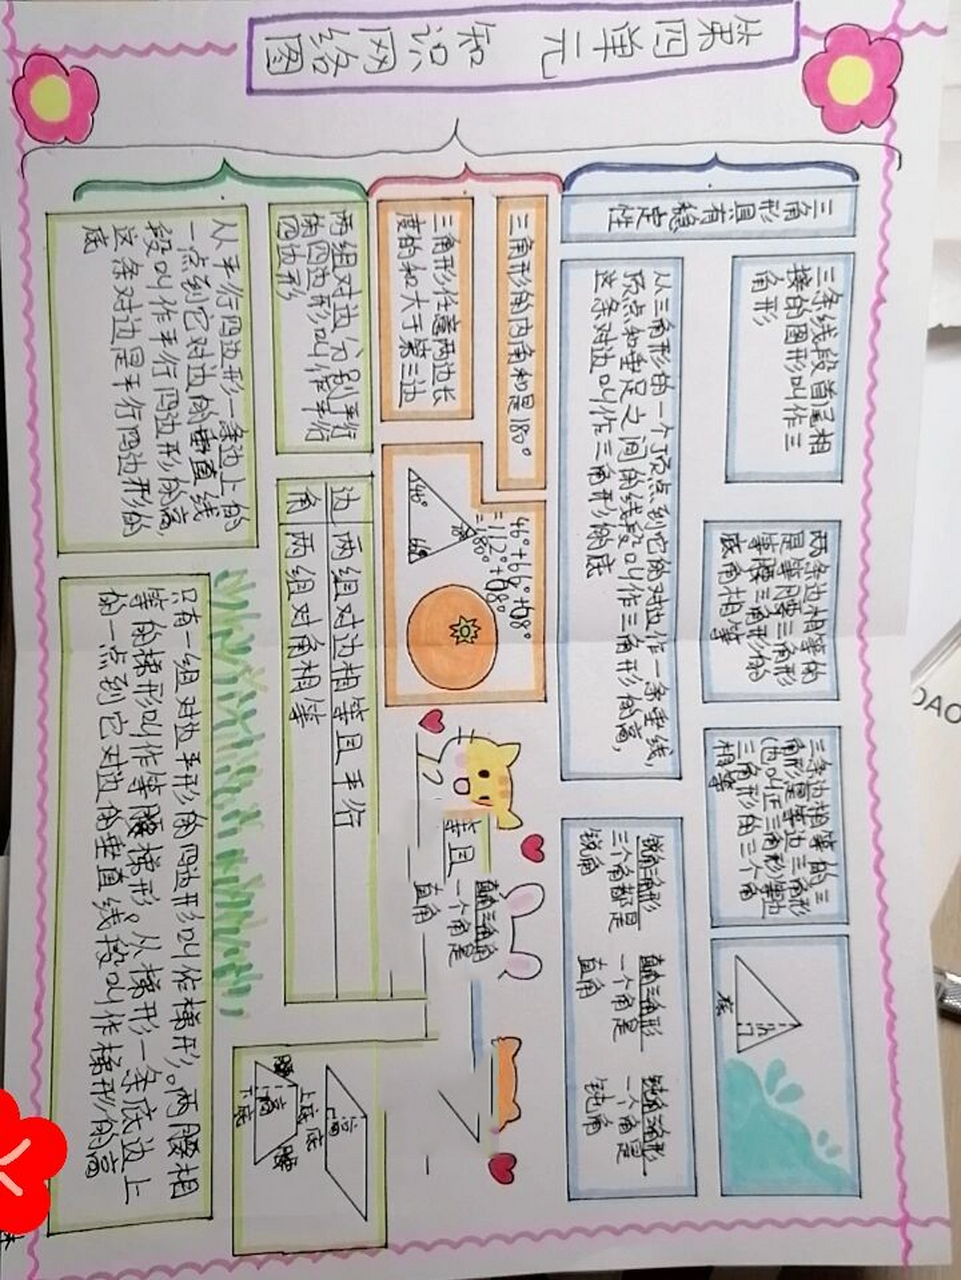 第四单元 知识网络图
三角形具有稳定性
三条线段首尾相
接的图形叫作三
角形
两条边相等的
是等腰三角形
等腰三角形的
底角相等
三条边相等的三
角形是等边三角形
(也叫正三角形)等边
三角形的三个角
相等
底
从三角形的一个顶点到它的对边作一条垂线,
顶点和垂足之间的线段叫作三角形的高,
这条对边叫作三角形的底
锐角三角形
三个角都是
锐角
直角三角形
一个角是
直角
钝角三角形
一个角是
钝角
三角形的内角和是180°
三角形任意两边长
度的和大于第三边
46°+66°+68°
=112°+68°
=180°
等且
直角三角形
一个角是
直角
两组对边分别平行
的四边形叫作平行
四边形
边 两组对边相等且平行
角 两组对角相等
从平行四边形一条边上的
一点到它对边的垂直线
段叫作平行四边形的高,
这条对边是平行四边形的
底
只有一组对边平形的四边形叫作梯形。两腰相
等的梯形叫作等腰梯形。从梯形一条底边上
的一点到它对边的垂直线段叫作梯形的高
高
底
上底
腰
高
腰
下底